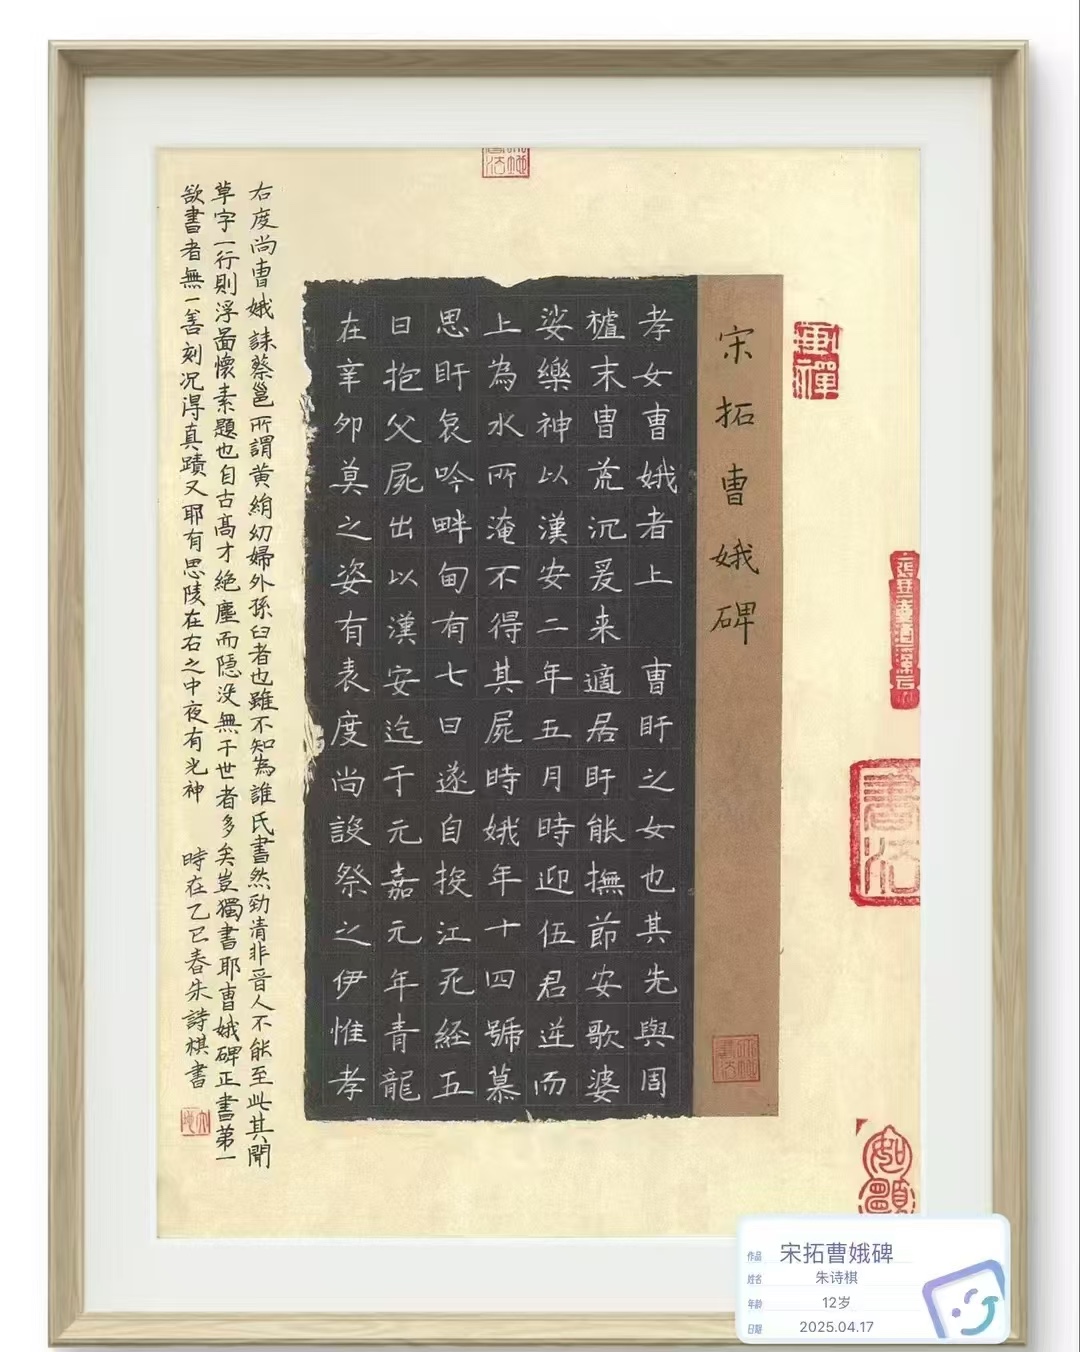 宋拓曹娥碑
孝女曹娥者上 曹盱之女也其先與周
櫨末曺荒沉爰来適居盱能撫節安歌婆
娑樂神以漢安二年五月時迎伍君逆而
上為水所淹不得其屍時娥年十四號慕
思盱哀吟畔甸有七日遂自投江死経五
日抱父屍出以漢安迄于元嘉元年青龍
在辛卯莫之姿有表度尚設祭之伊惟孝
右度尚曹娥誄蔡邕所謂黄絹幼婦外孫臼者也雖不知為誰氏書然勁清非晉人不能至此其間
草字一行則浮啚懷素題也自古高才絶塵而隠没無于世者多矣豈獨書耶曹娥碑正書第一
欲書者無一善刻况得真蹟又耶有思陵在右之中夜有光神 時在乙巳春朱詩棋書
書法
作品 宋拓曹娥碑
姓名 朱诗棋
年龄 12岁
日期 2025.04.17